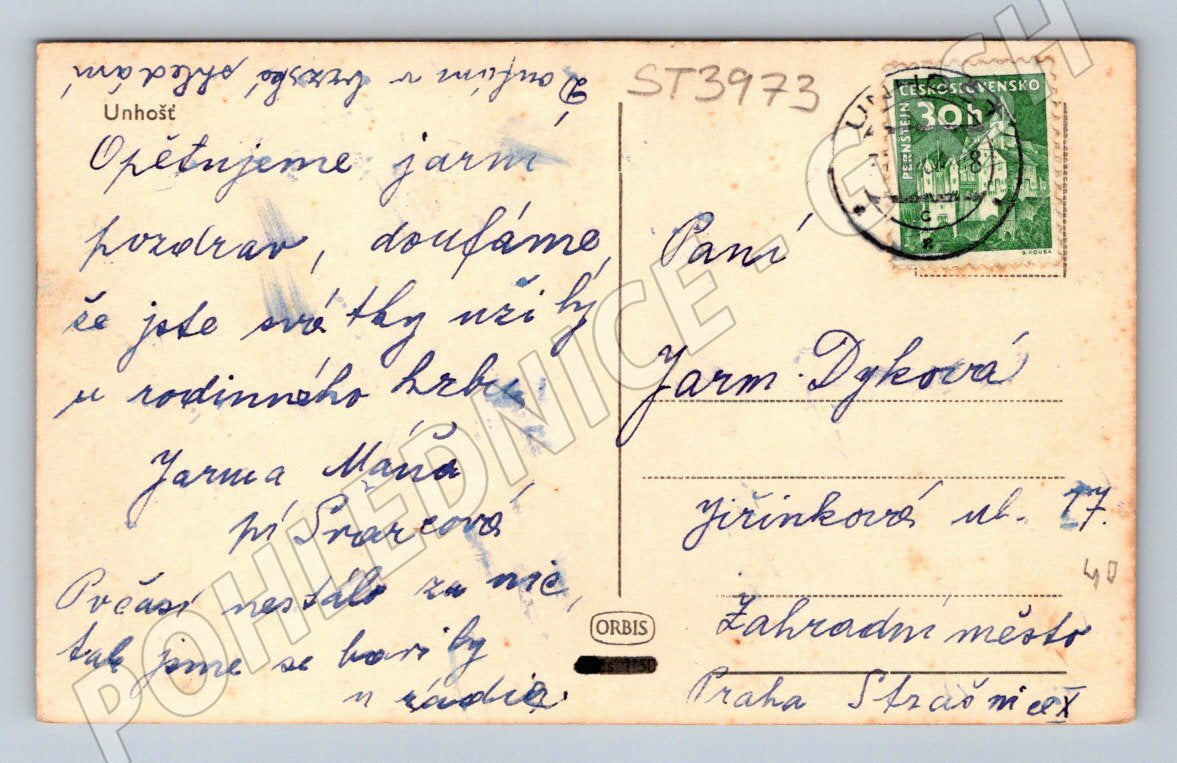 Doufám v brzské shledání
ST3973
Unhošť
Opětujeme jarní
pozdrav, doufáme,
že jste svátky užily
u rodinného krbu.
Jarma Máňa
pí Švarcová
Počasí nestálo za nic,
tak jsme se bavily
u rádia.
ČESKOSLOVENSKO
30h
PERNŠTEJN
UNHOŠŤ
C
Paní
Jarm. Dyková
Jiřinková ul. 17.
40
Zahradní město
Praha Strašnice X
ORBIS
POHLEDNICE - G